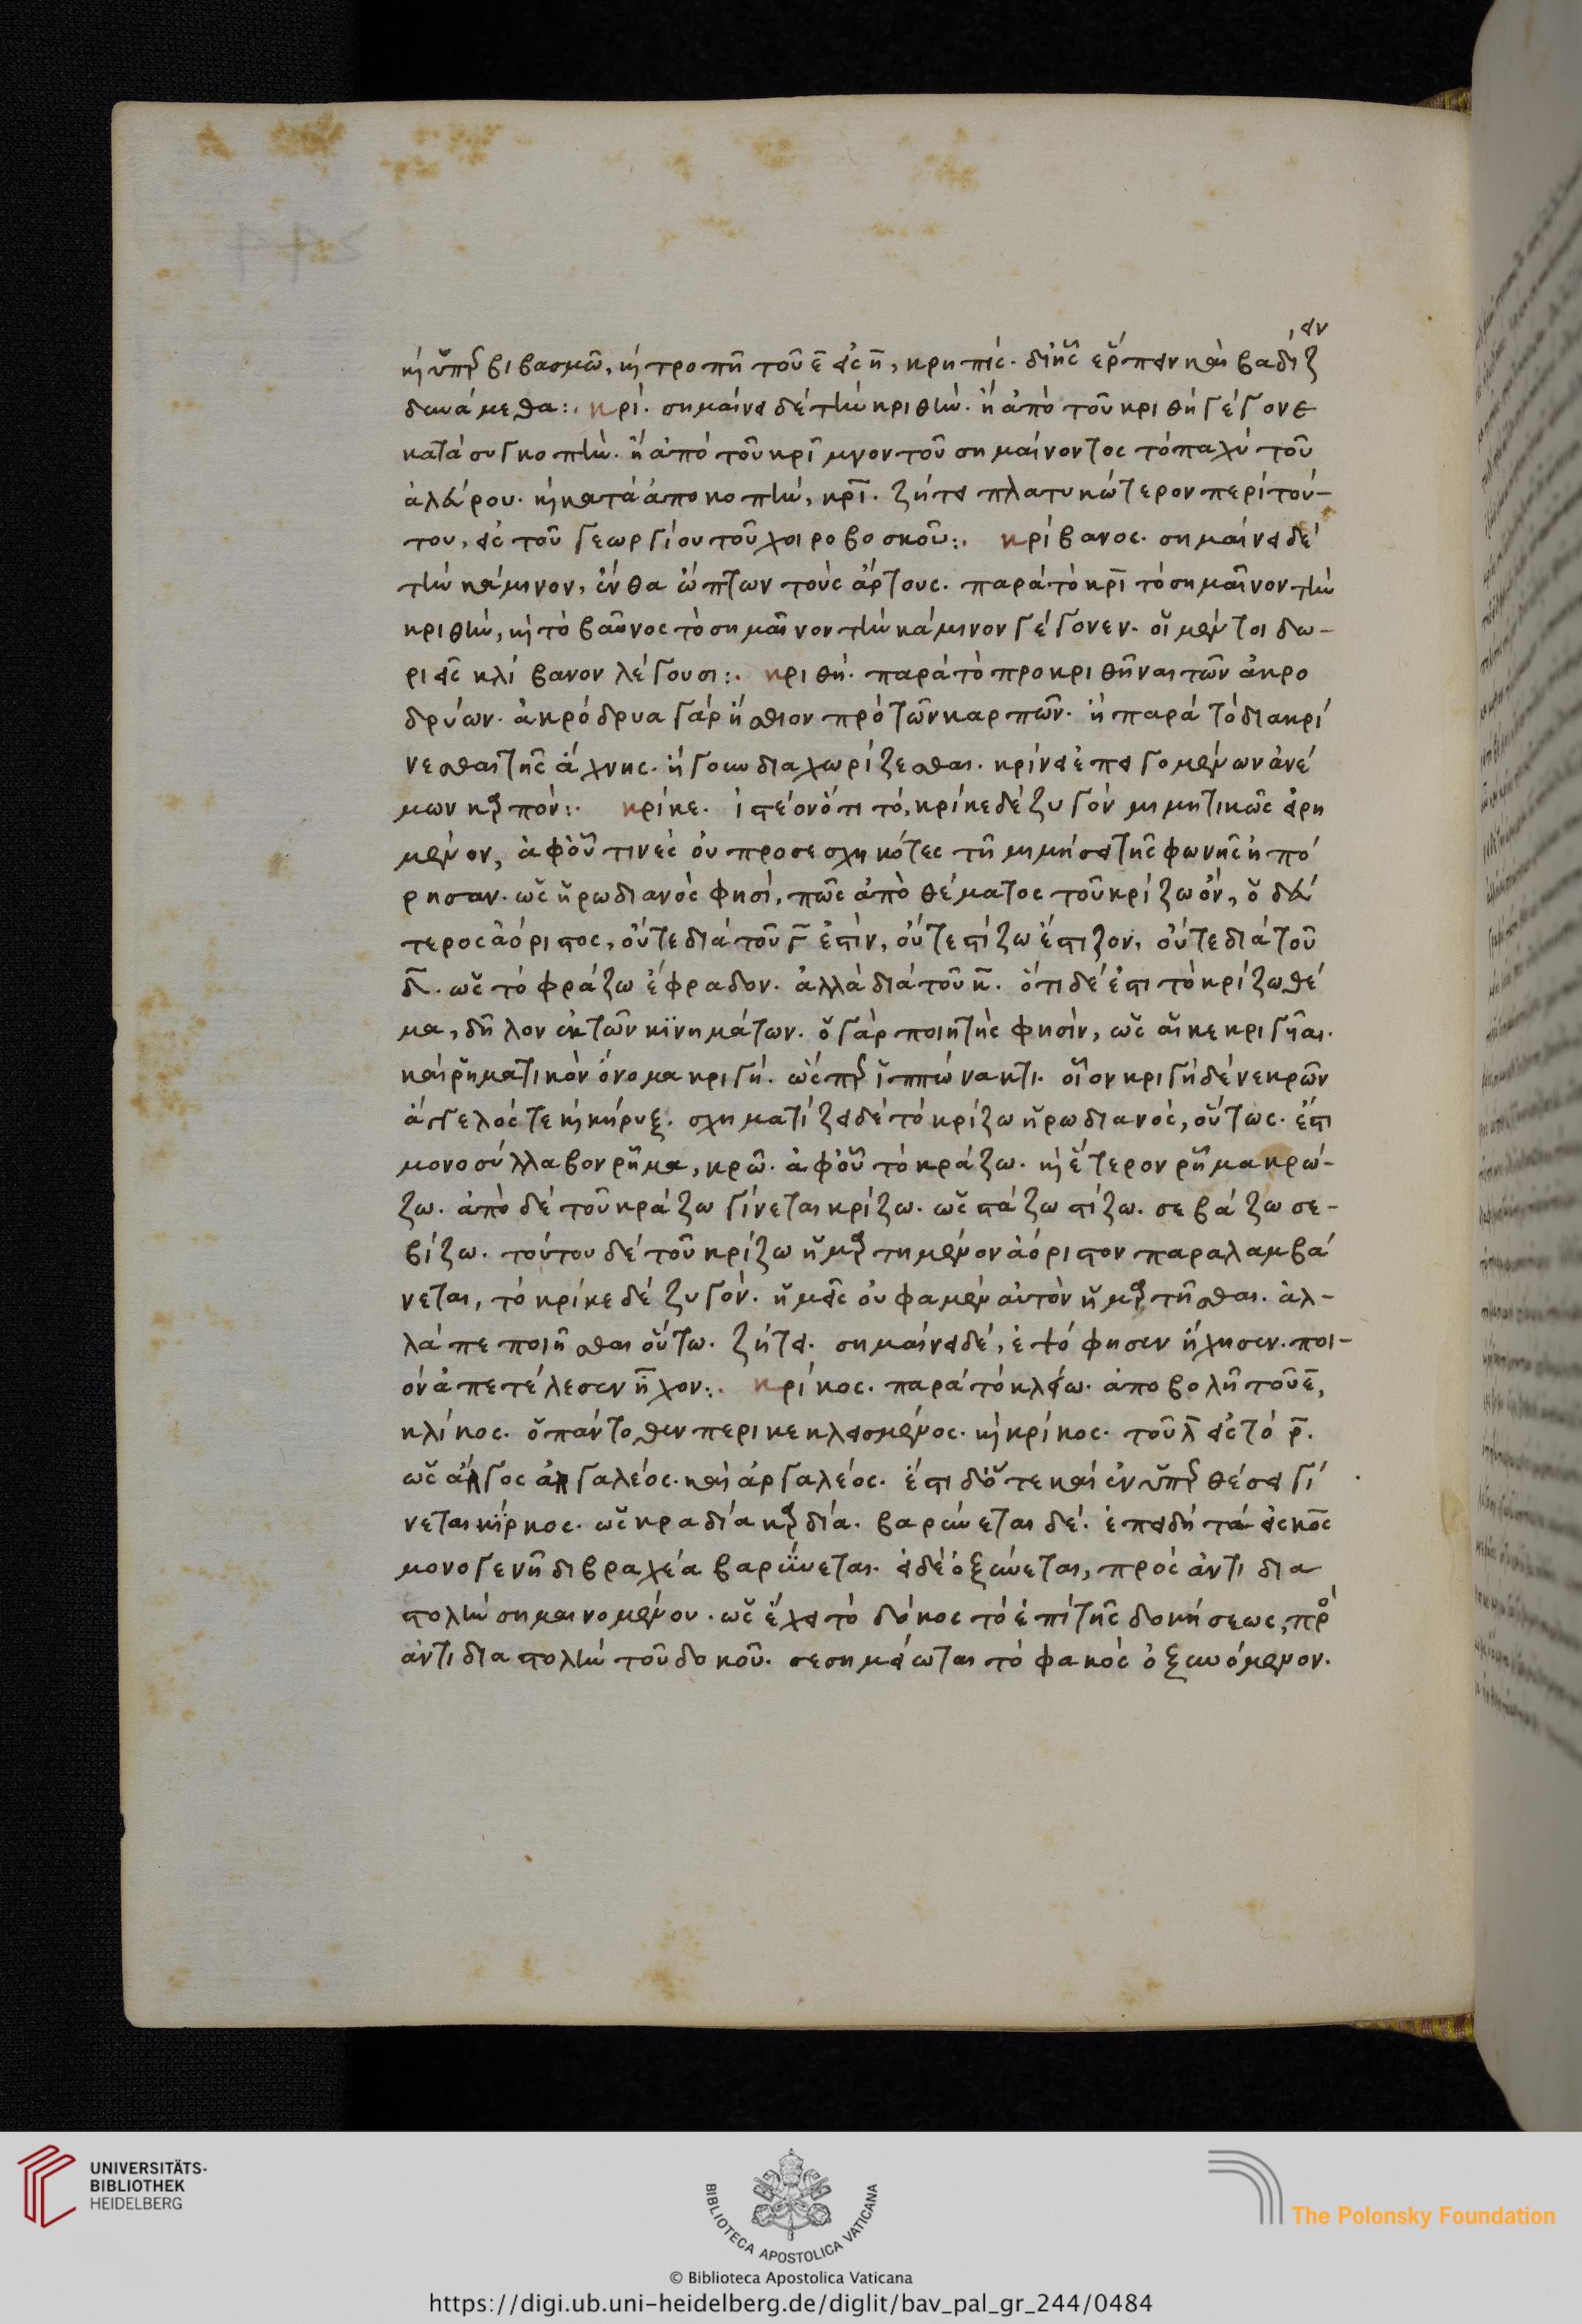 καὶ ὑπερβιβασμῶ, καὶ τροπῆ τοῦ ε̄ εἰς η̄, κρηπίς. δι' ἧς ἕρπειν καὶ βαδίζειν
δυνάμεθα:. κρί. σημαίνει δὲ τὴν κριθήν. ἢ ἀπὸ τοῦ κριθή γέγονε
κατὰ συγκοπήν. ἢ ἀπὸ τοῦ κρῖμνον τοῦ σημαίνοντος τὸ παχὺ τοῦ
ἀλεύρου. καὶ κατὰ ἀποκοπήν, κρῖ. ζήτει πλατυκώτερον περὶ τού-
του, εἰς τοῦ γεωργίου τοῦ χοιροβοσκοῦ:. κρίβανος. σημαίνει δὲ
τὴν κάμινον, ἔνθα ὤπτων τοὺς ἄρτους. παρὰ τὸ κρῖ τὸ σημαῖνον τὴν
κριθήν, καὶ τὸ βαῦνος τὸ σημαῖνον τὴν κάμινον γέγονεν. οἱ μέντοι δω-
ριεῖς κλίβανον λέγουσι:. κριθή. παρὰ τὸ προκριθῆναι τῶν ἀκρο
δρύων. ἀκρόδρυα γὰρ ἤσθιον πρὸ τῶν καρπῶν. ἢ παρὰ τὸ διακρί
νεσθαι τῆς ἄχνης. ἤγουν διαχωρίζεσθαι. κρίνει ἐπειγομένων ἀνέ
μων καρπόν:. κρίκε. ἰστέον ὅτι τό, κρίκε δὲ ζυγόν μιμητικῶς εἰρη
μένον, ἀφ' οὗ τινὲς οὐ προσεσχηκότες τῆ μιμήσει τῆς φωνῆς ἠπό
ρησαν. ὡς ἡρωδιανός φησί, πῶς ἀπὸ θέματος τοῦ κρίζω ὄν, ὁ δεύ
τερος ἀόριστος, οὔτε διὰ τοῦ γ̄ ἐστίν, οὔτε στίζω ἔστιζον, οὔτε διὰ τοῦ
δ̄. ὡς τὸ φράζω ἔφραδον. ἀλλὰ διὰ τοῦ κ̄. ὅτι δὲ ἔστι τὸ κρίζω θέ
μα, δῆλον ἐκ τῶν κινημάτων. ὁ γὰρ ποιητής φησίν, ὡς αἵ κε κριγῆαι.
καὶ ῥηματικὸν ὄνομα κριγή. ὡς παρ' ἱππώνακτι. οἷον κριγὴ δὲ νεκρῶν
ἄγγελός τε καὶ κήρυξ. σχηματίζει δὲ τὸ κρίζω ἡρωδιανός, οὕτως. ἔστι
μονοσύλλαβον ῥῆμα, κρῶ. ἀφ' οὗ τὸ κράζω. καὶ ἕτερον ῥῆμα κρώ-
ζω. ἀπὸ δὲ τοῦ κράζω γίνεται κρίζω. ὡς στάζω στίζω. σεβάζω σε-
βίζω. τούτου δὲ τοῦ κρίζω ἡμαρτημένον ἀόριστον παραλαμβά
νεται, τὸ κρίκε δὲ ζυγόν. ἡμεῖς οὐ φαμὲν αὐτὸν ἡμαρτῆσθαι. ἀλ-
λὰ πεποιῆσθαι οὕτω. ζήτει. σημαίνει δέ, ἐψόφησεν ἤχησεν. ποι-
ὸν ἀπετέλεσεν ἦχον:. κρίκος. παρὰ τὸ κλείω. ἀποβολῆ τοῦ ε̄,
κλίκος. ὁ πάντοθεν περικεκλεισμένος. καὶ κρίκος. τοῦ λ̄ εἰς τὸ ρ̄.
ὡς ἄλγος ἀλγαλέος. καὶ ἀργαλέος. ἔστι δ' ὅτε καὶ ἐν ὑπερθέσει γί
νεται κίρκος. ὡς κραδία καρδία. βαρύνεται δέ. ἐπειδὴ τὰ εἰς κος
μονογενῆ διβραχέα βαρύνεται. εἰ δὲ ὀξύνεται, πρὸς ἀντιδια
στολὴν σημαινομένου. ὡς ἔχει τὸ δόκος τὸ ἐπὶ τῆς δοκήσεως, πρὸς
ἀντιδιαστολὴν τοῦ δοκοῦ. σεσημείωται τὸ φακός ὀξυνόμενον.
UNIVERSITÄTS-
BIBLIOTHEK
HEIDELBERG
BIBLIOTECA APOSTOLICA VATICANA
The Polonsky Foundation
© Biblioteca Apostolica Vaticana
https://digi.ub.uni-heidelberg.de/diglit/bav_pal_gr_244/0484